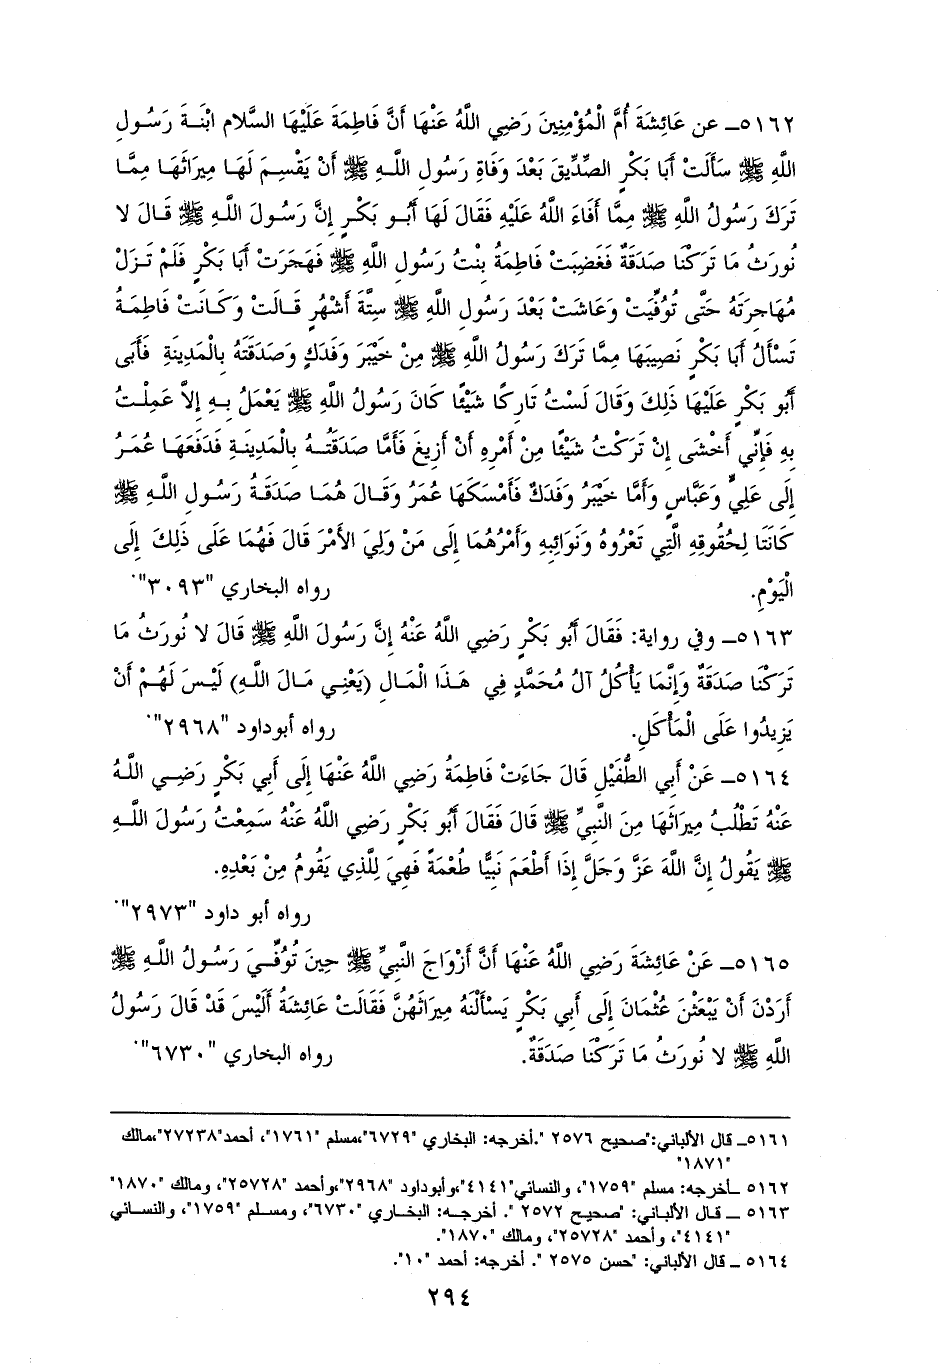 ٥١٦٢ــ عن عَائِشَةَ أُمَّ الْمُؤْمِنِينَ رَضِي اللَّهُ عَنْهَا أَنَّ فَاطِمَةَ عَلَيْهَا السَّلام ابْنَـةَ رَسُـولِ
اللَّهِ ﷺ سَأَلَتْ أَبَا بَكْرٍ الصِّدِّيقَ بَعْدَ وَفَاةِ رَسُولِ اللَّـهِ ﷺ أَنْ يَقْسِمَ لَهَا مِيرَاثَهَـا مِمَّـا
تَرَكَ رَسُولُ اللَّهِ ﷺ مِمَّا أَفَاءَ اللَّهُ عَلَيْهِ فَقَالَ لَهَا أَبُـو بَكْـرٍ إِنَّ رَسُـولَ اللَّـهِ ﷺ قَـالَ لا
نُورَثُ مَا تَرَكْنَا صَدَقَةٌ فَغَضِبَتْ فَاطِمَةُ بِنْتُ رَسُولِ اللَّهِ ﷺ فَهَجَرَتْ أَبَا بَكْرٍ فَلَمْ تَـزَلْ
مُهَاجِرَتَهُ حَتَّى تُوُفِّيَتْ وَعَاشَتْ بَعْدَ رَسُولِ اللَّهِ ﷺ سِتَّةَ أَشْهُرٍ قَـالَتْ وَكَـانَتْ فَاطِمَـةُ
تَسْأَلُ أَبَا بَكْرٍ نَصِيبَهَا مِمَّا تَرَكَ رَسُولُ اللَّهِ ﷺ مِنْ خَيْبَرَ وَفَدَكٍ وَصَدَقَتَهُ بِالْمَدِينَةِ فَأَبَى
أَبُو بَكْرٍ عَلَيْهَا ذَلِكَ وَقَالَ لَسْتُ تَارِكًا شَيْئًا كَانَ رَسُولُ اللَّهِ ﷺ يَعْمَلُ بِـهِ إِلاَّ عَمِلْـتُ
بِهِ فَإِنِّي أَخْشَى إِنْ تَرَكْتُ شَيْئًا مِنْ أَمْرِهِ أَنْ أَزِيغَ فَأَمَّا صَدَقَتُـهُ بِالْمَدِينَـةِ فَدَفَعَهَـا عُمَـرُ
إِلَى عَلِيٍّ وَعَبَّاسٍ وَأَمَّا خَيْبَرُ وَفَدَكٌ فَأَمْسَكَهَا عُمَرُ وَقَـالَ هُمَـا صَدَقَـةُ رَسُـولِ اللَّـهِ ﷺ
كَانَتَا لِحُقُوقِهِ الَّتِي تَعْرُوهُ وَنَوَائِبِهِ وَأَمْرُهُمَا إِلَى مَنْ وَلِيَ الأَمْرَ قَالَ فَهُمَا عَلَى ذَلِكَ إِلَى
الْيَوْمِ. رواه البخاري "٣٠٩٣".
٥١٦٣ــ وفي رواية: فَقَالَ أَبُو بَكْرٍ رَضِي اللَّهُ عَنْهُ إِنَّ رَسُولَ اللَّهِ ﷺ قَالَ لا نُورَثُ مَا
تَرَكْنَا صَدَقَةٌ وَإِنَّمَا يَأْكُلُ آلُ مُحَمَّدٍ فِي هَـذَا الْمَـالِ (يَعْنِي مَـالَ اللَّـهِ) لَيْسَ لَهُمْ أَنْ
يَزِيدُوا عَلَى الْمَأْكَلِ. رواه أبوداود "٢٩٦٨".
٥١٦٤ــ عَنْ أَبِي الطُّفَيْلِ قَالَ جَاءَتْ فَاطِمَةُ رَضِي اللَّهُ عَنْهَا إِلَى أَبِي بَكْرٍ رَضِـي اللَّـهُ
عَنْهُ تَطْلُبُ مِيرَاثَهَا مِنَ النَّبِيِّ ﷺ قَالَ فَقَالَ أَبُو بَكْرٍ رَضِي اللَّهُ عَنْهُ سَمِعْتُ رَسُولَ اللَّـهِ
ﷺ يَقُولُ إِنَّ اللَّهَ عَزَّ وَجَلَّ إِذَا أَطْعَمَ نَبِيًّا طُعْمَةً فَهِيَ لِلَّذِي يَقُومُ مِنْ بَعْدِهِ.
رواه أبو داود "٢٩٧٣".
٥١٦٥ــ عَنْ عَائِشَةَ رَضِي اللَّهُ عَنْهَا أَنَّ أَزْوَاجَ النَّبِيِّ ﷺ حِينَ تُوُفِّـيَ رَسُـولُ اللَّـهِ ﷺ
أَرَدْنَ أَنْ يَبْعَثْنَ عُثْمَانَ إِلَى أَبِي بَكْرٍ يَسْأَلْنَهُ مِيرَاثَهُنَّ فَقَالَتْ عَائِشَةُ أَلَيْسَ قَدْ قَالَ رَسُولُ
اللَّهِ ﷺ لا نُورَثُ مَا تَرَكْنَا صَدَقَةٌ. رواه البخاري "٦٧٣٠".
٥١٦١ــ قال الألباني:"صحيح ٢٥٧٦ ".أخرجه: البخاري "٦٧٢٩"،مسلم "١٧٦١"، أحمد"٢٧٢٣٨"،مالك
"١٨٧١"
٥١٦٢ ــأخرجه: مسلم "١٧٥٩"، والنسائي"٤١٤١"،وأبوداود "٢٩٦٨"،وأحمد "٢٥٧٢٨"، ومالك "١٨٧٠"
٥١٦٣ ــ قـال الألباني: "صحيح ٢٥٧٢ ". أخرجـه: البخـاري "٦٧٣٠"، ومسـلم "١٧٥٩"، والنسـائي
"٤١٤١"، وأحمد "٢٥٧٢٨"، ومالك "١٨٧٠".
٥١٦٤ ــ قال الألباني: "حسن ٢٥٧٥ ". أخرجه: أحمد "١٠".
٢٩٤